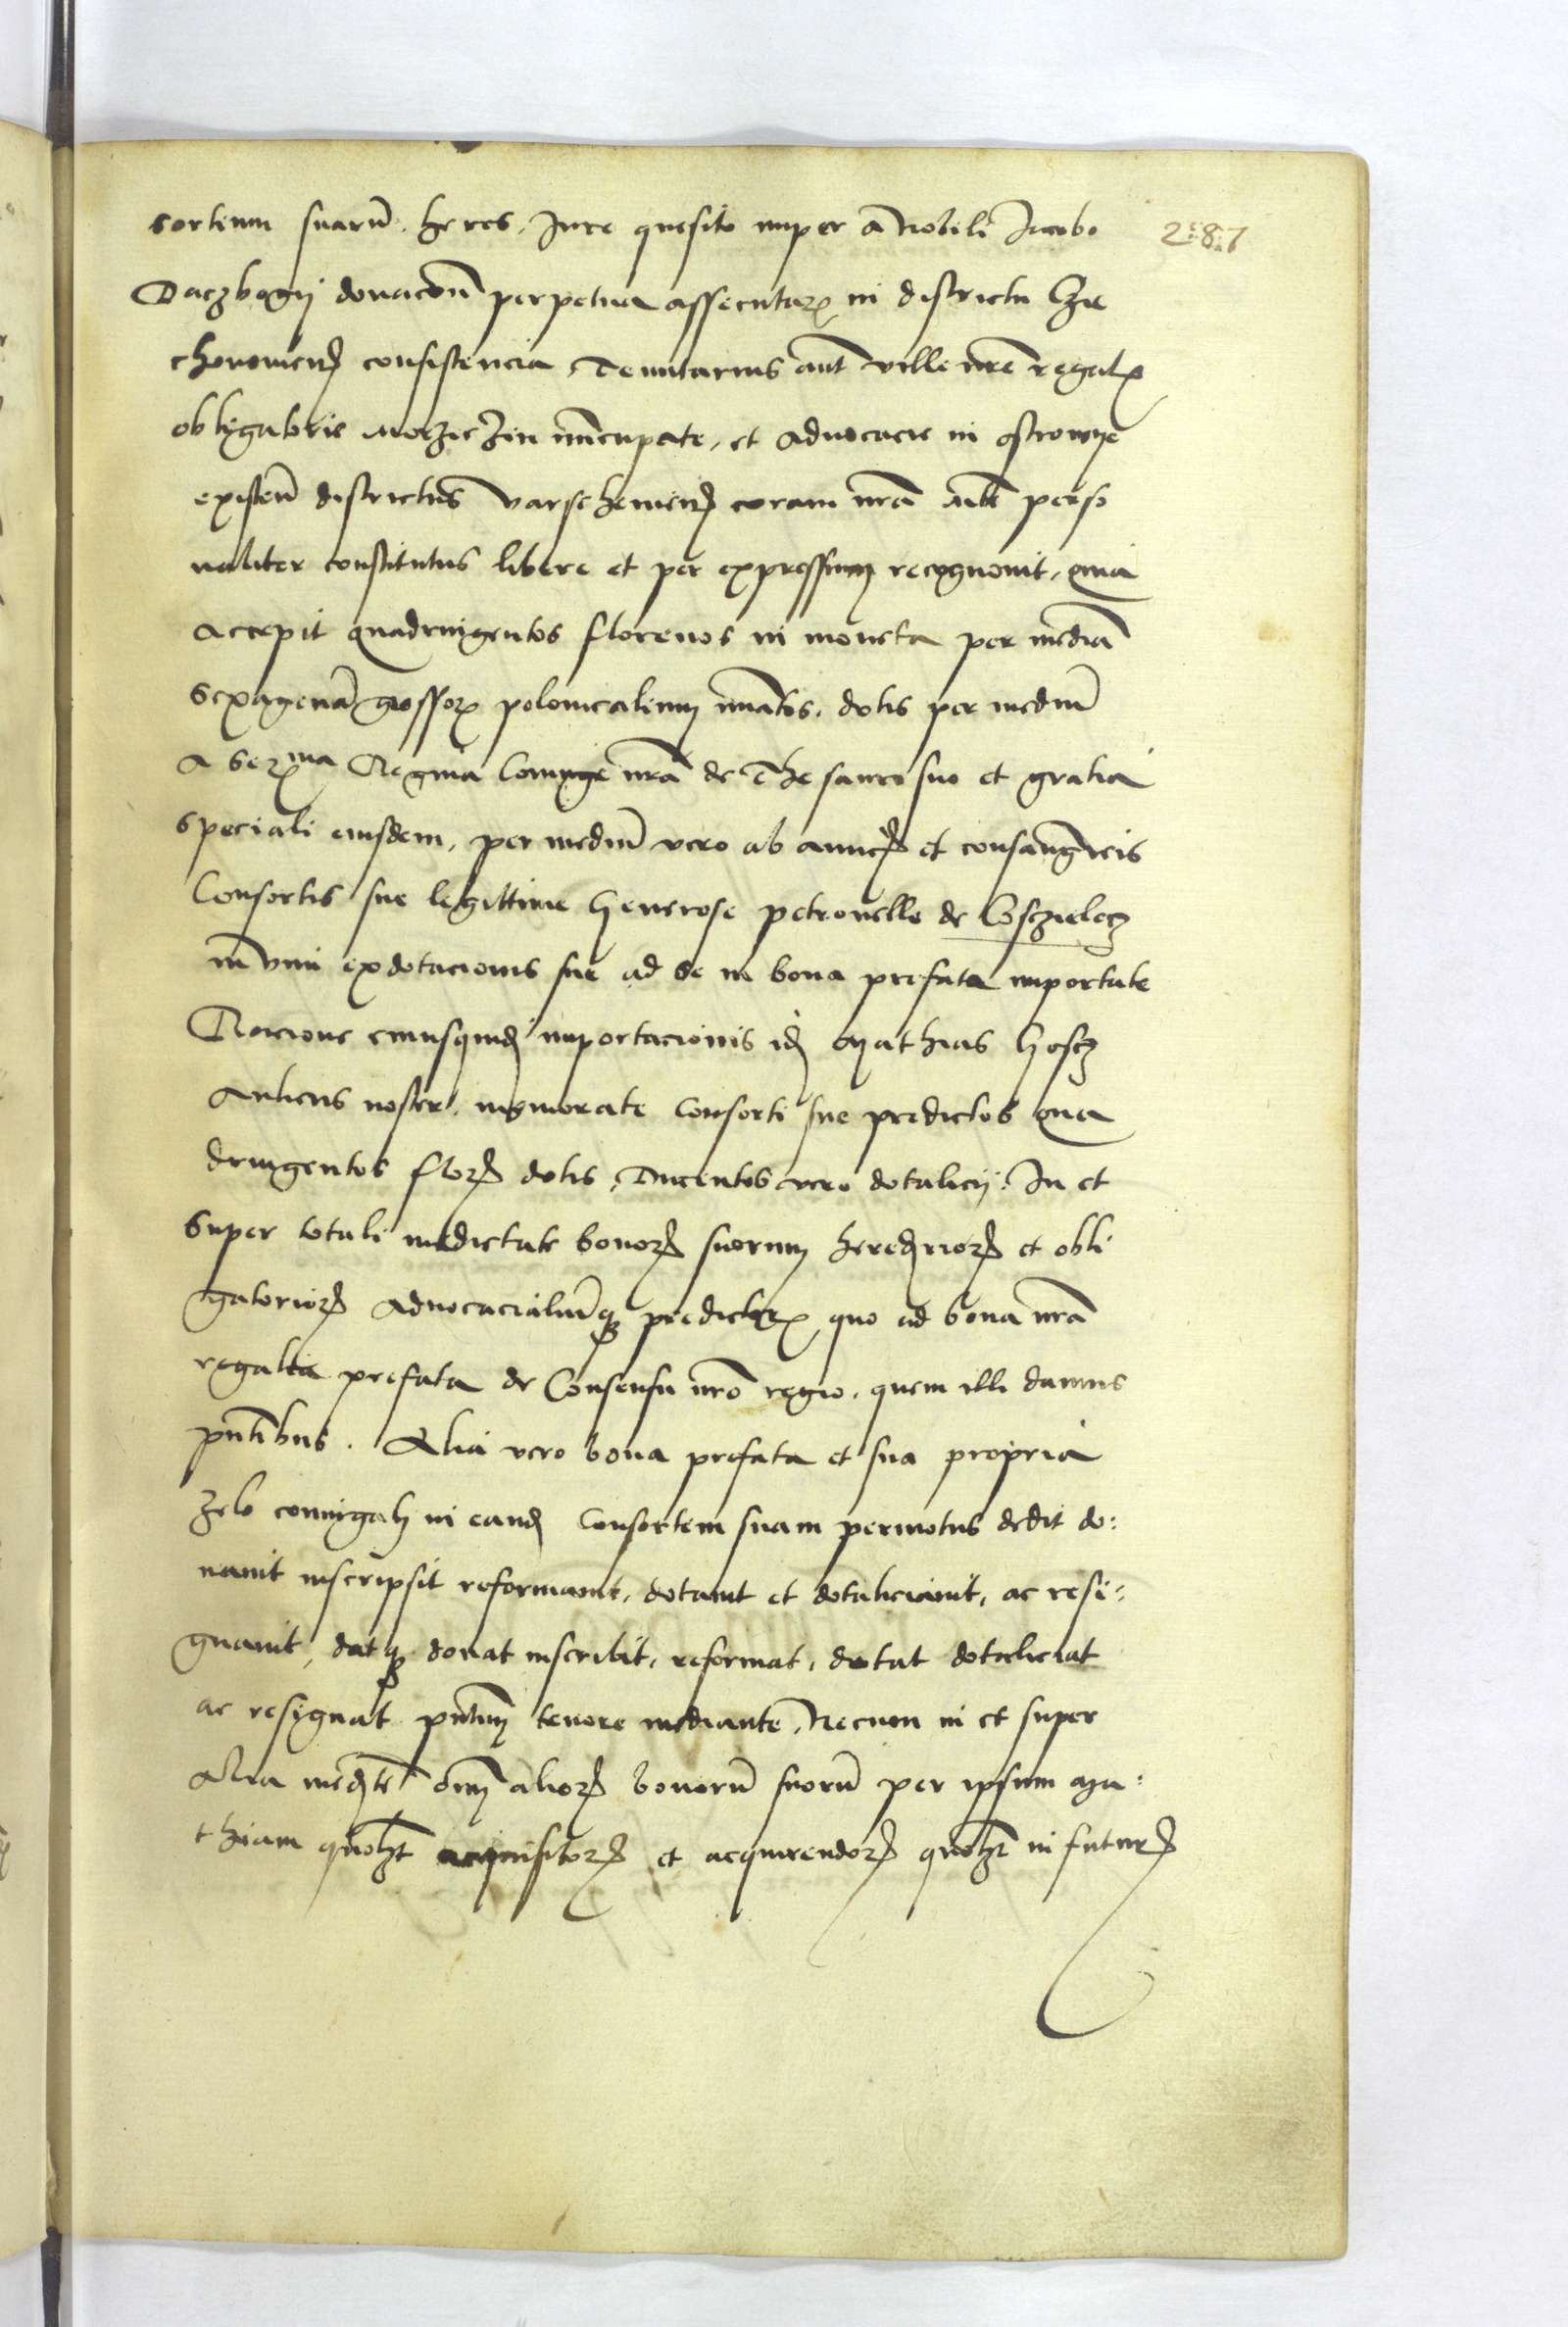 sortium suarũ. heres. Jure quesito nuper a Nobili Jacobo
287
Daczbogij donacõn perpetua assecutarꝝ in districtu Cze
chonowieñ consistencia, Tenutarius aũt ville nr̃e regalꝭ
obligatorie nũcupate, et advocacie in ostrowye
existeñ districtus varschewieñ coram nr̃a Mte perso
naliter constitutus libere et per expressum recognouit, quia
accepit quadringentos florenos in moneta per mediã
sexagenã grossorꝝ polonicalium nũatos. dotis per mediũ
a Serma Regina Coniuge nr̃a de Thesauro suo et gratia
speciali eiusdem, per mediũ vero ab amicis et consangwĩeis
Consortis sue legittime Generose petronelle de Cosczielecz
in vim exdotacionis sue ad se in bona prefata importate
Racione cuiusquidẽ importacionis idẽ Mathias Gostz
Aulicus noster. memorate Consorti sue predictos qua
dringentos florẽ dotis, Ducentos vero dotalicij. In et
super totali medietate bonorꝝ suorum heredriorꝝ et obli
gatoriorꝝ advocacialiũqꝫ predictorꝝ quo ad bona nr̃a
regalia prefata de Consensu nr̃o regio. quem illi damus
pñtibus. Alia vero bona prefata et sua propria
zelo coniugali in eandẽ Consortem suam permotus dedit do:
nauit inscripsit reformauit, dotauit et dotaliciauit, ac resi:
gnauit, datqꝫ donat inscribit, reformat, dotat dotaliciat
ac resignat pñtium tenore mediante, Necnon in et super
Alia medtẽ om̃ aliorꝝ bonorũ suorũ per ipsum Ma:
thiam quolzt acquisitorꝝ et acquirendorꝝ quolzt in futurꝭ